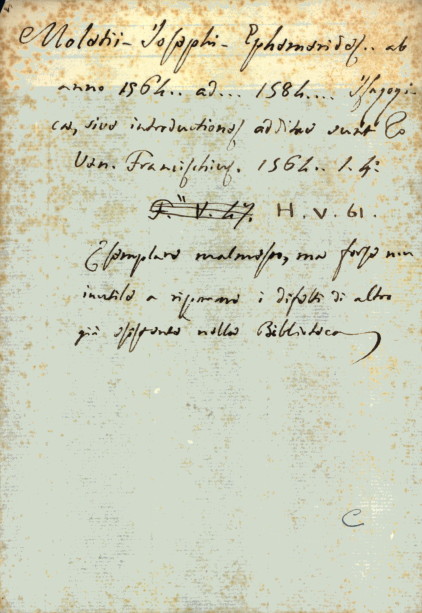 Moletii - Josephi - Ephemerides.. ab
anno 1564.. ad... 1584.... Isagogi-
cæ, sive introductiones additæ sunt &c
Ven. Francischius. 1564.. 1. 4:
P. V. 47. H. V. 61.
Esemplare malmesso, ma forse non
inutile a risarcire i difetti di altro
già esistente nella Biblioteca
C